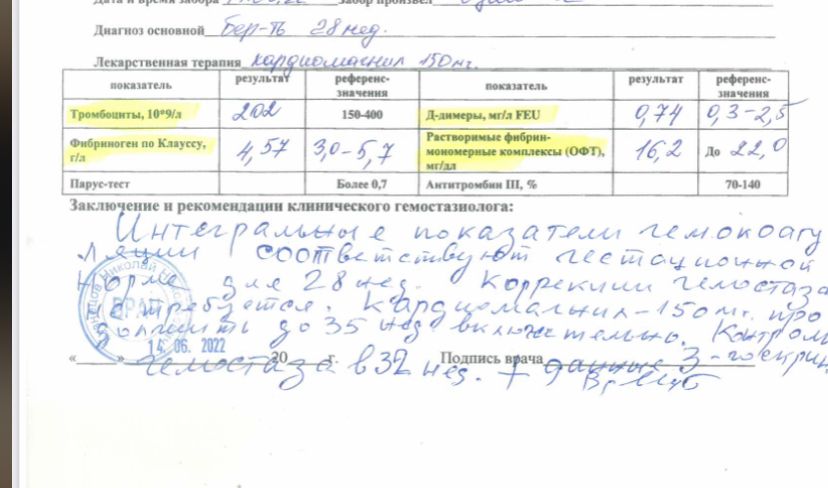 Дата и время забора Забор произвел
Диагноз основной бер-ть 28 нед.
Лекарственная терапия кардиомагнил 150 мг.
показатель результат референс-значения показатель результат референс-значения
Тромбоциты, 10*9/л 202 150-400 Д-димеры, мг/л FEU 0,74 0,3-2,5
Фибриноген по Клауссу, г/л 4,57 3,0-5,7 Растворимые фибрин-мономерные комплексы (ОФТ), мг/дл 16,2 До 22,0
Парус-тест Более 0,7 Антитромбин III, % 70-140
Заключение и рекомендации клинического гемостазиолога:
Интегральные показатели гемокоагу
ляции соответствуют гестационной
норме для 28 нед. Коррекции гемостаза
не требуется. Кардиомагнил-150мг. про
должить до 35 нед включительно. Контроль
« » 14. 06. 2022 20 г. Подпись врача
гемостаза в 32 нед. + данные 3-го скрин
ВРАЧ
Николай